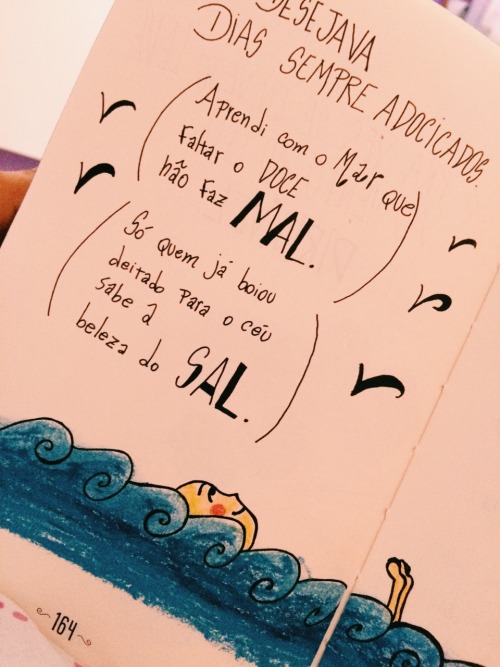 DESEJAVA
DIAS SEMPRE ADOCICADOS.
(Aprendi com o Mar que
Faltar o DOCE
não Faz MAL.)
(Só quem já boiou
deitado para o céu
sabe â
beleza do SAL.)
164